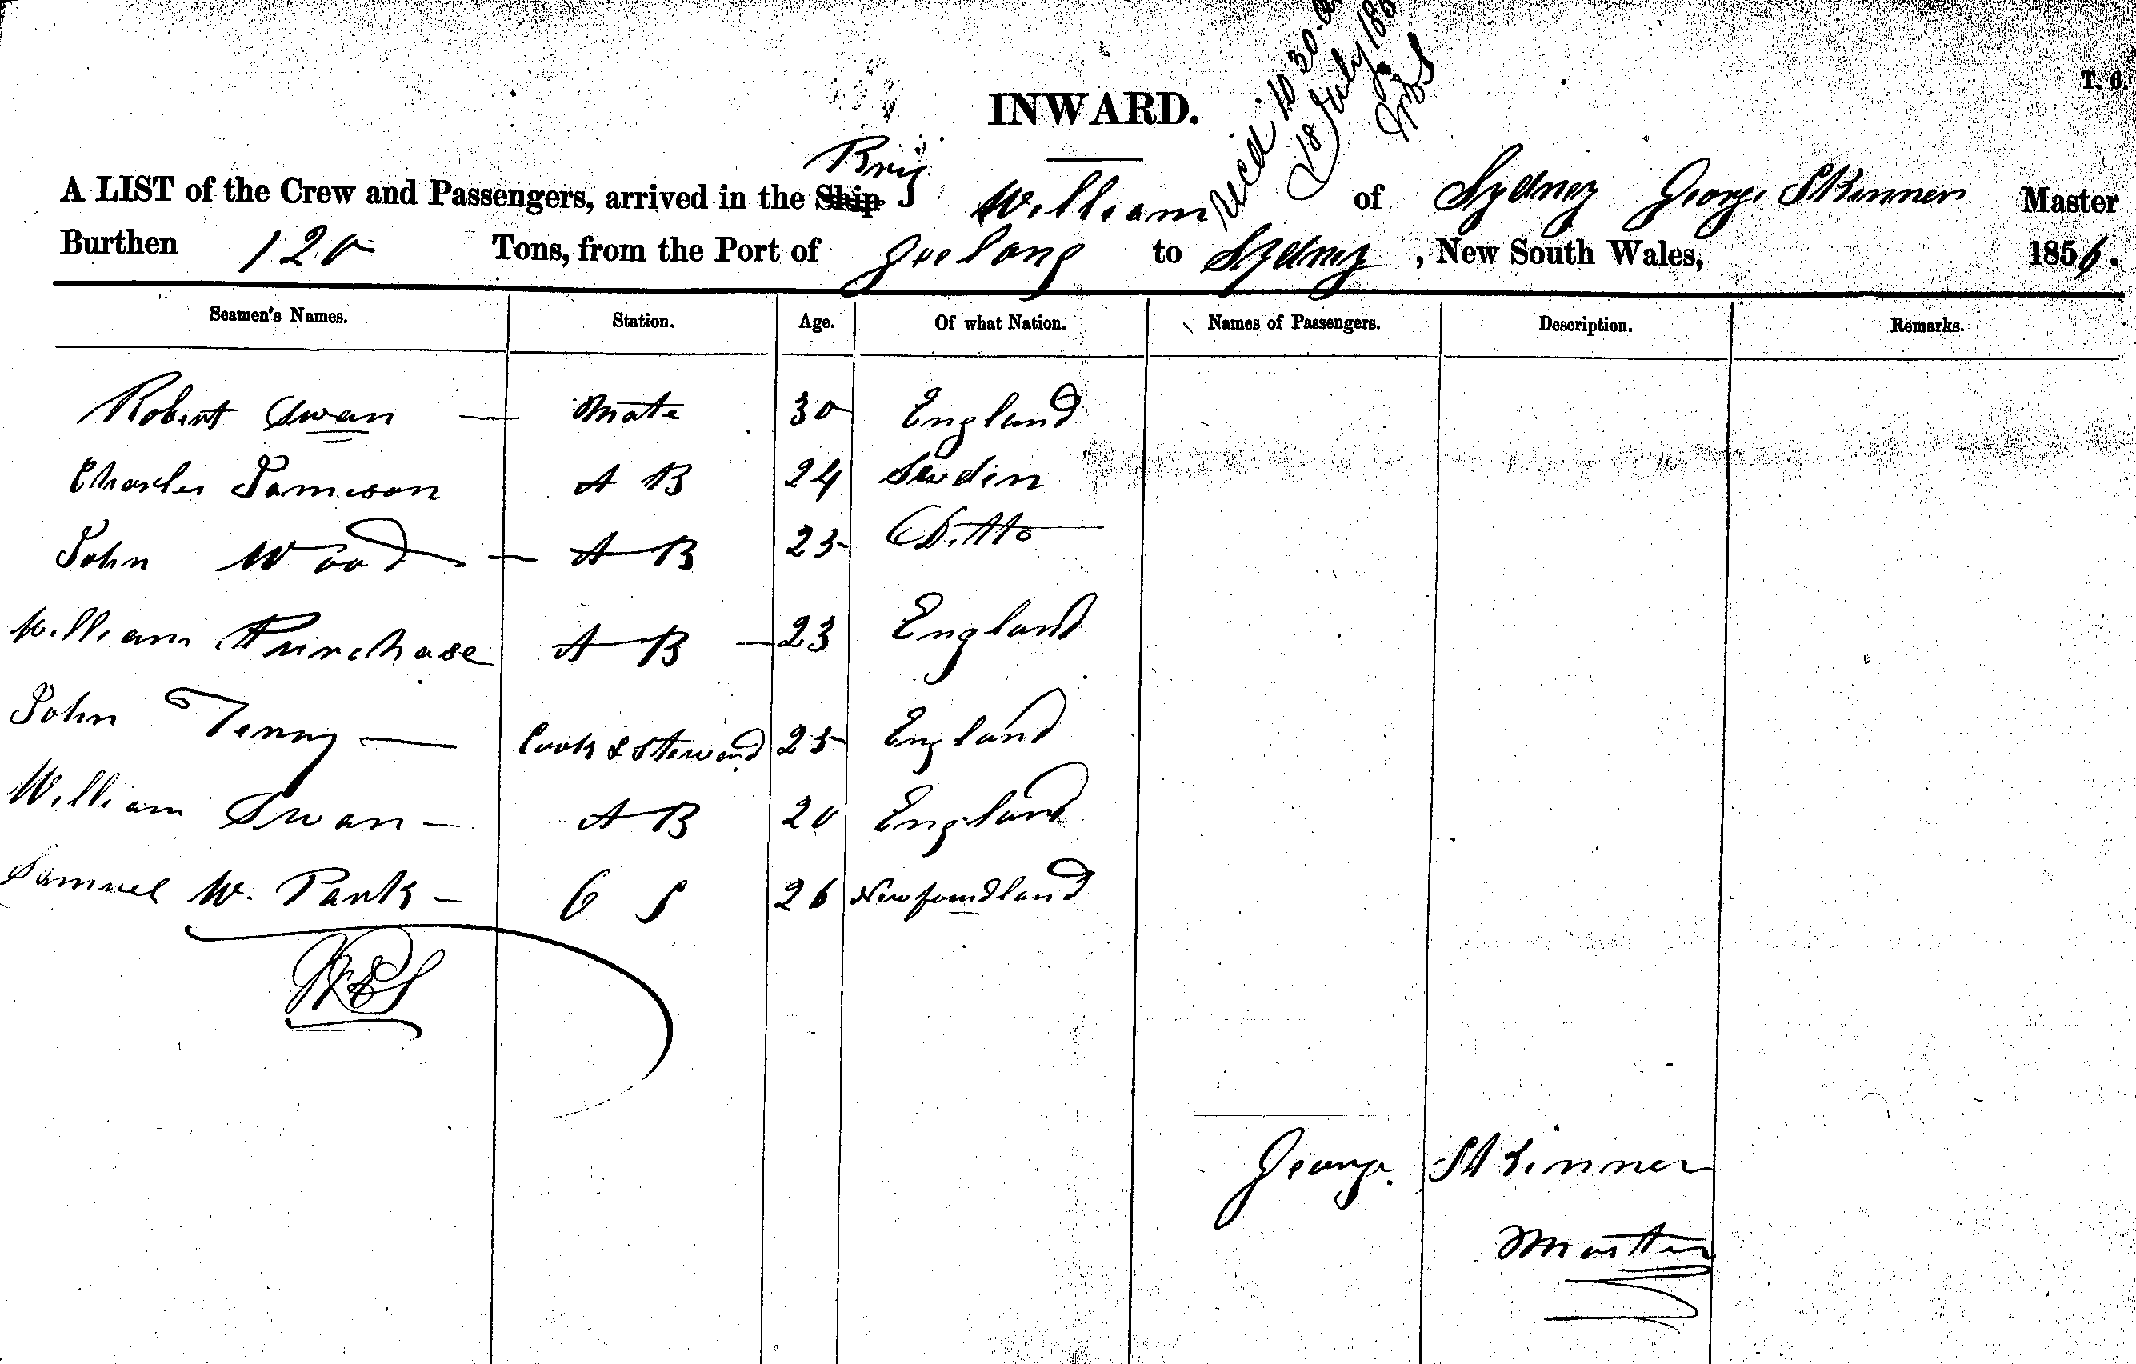 T. 6.
Recd 10 30 a
18 July 185
INWARD.
Brig
A LIST of the Crew and Passengers, arrived in the Ship William of Sydney George Skinner Master
Burthen 120 Tons, from the Port of Geelong to Sydney, New South Wales, 1856.
Seamen's Names. Station. Age. Of what Nation. Names of Passengers. Description. Remarks.
Robert Swan — Mate 30 England
Charles Jamieson A B 24 Sweden
John Wood — A B 25 Ditto
William Purchase A B — 23 England
John Tenny — Cook & Steward 25 England
William Swan — A B 20 England
Samuel W. Pank — O S 26 Newfoundland
George Skinner
Master